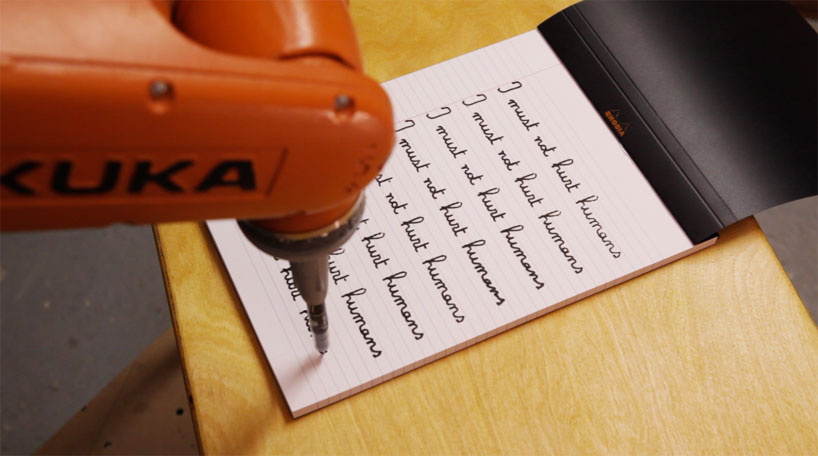 KUKA
RHODIA
I must not hurt humans
I must not hurt humans
I must not hurt humans
I must not hurt humans
not hurt humans
hurt humans
hurt humans